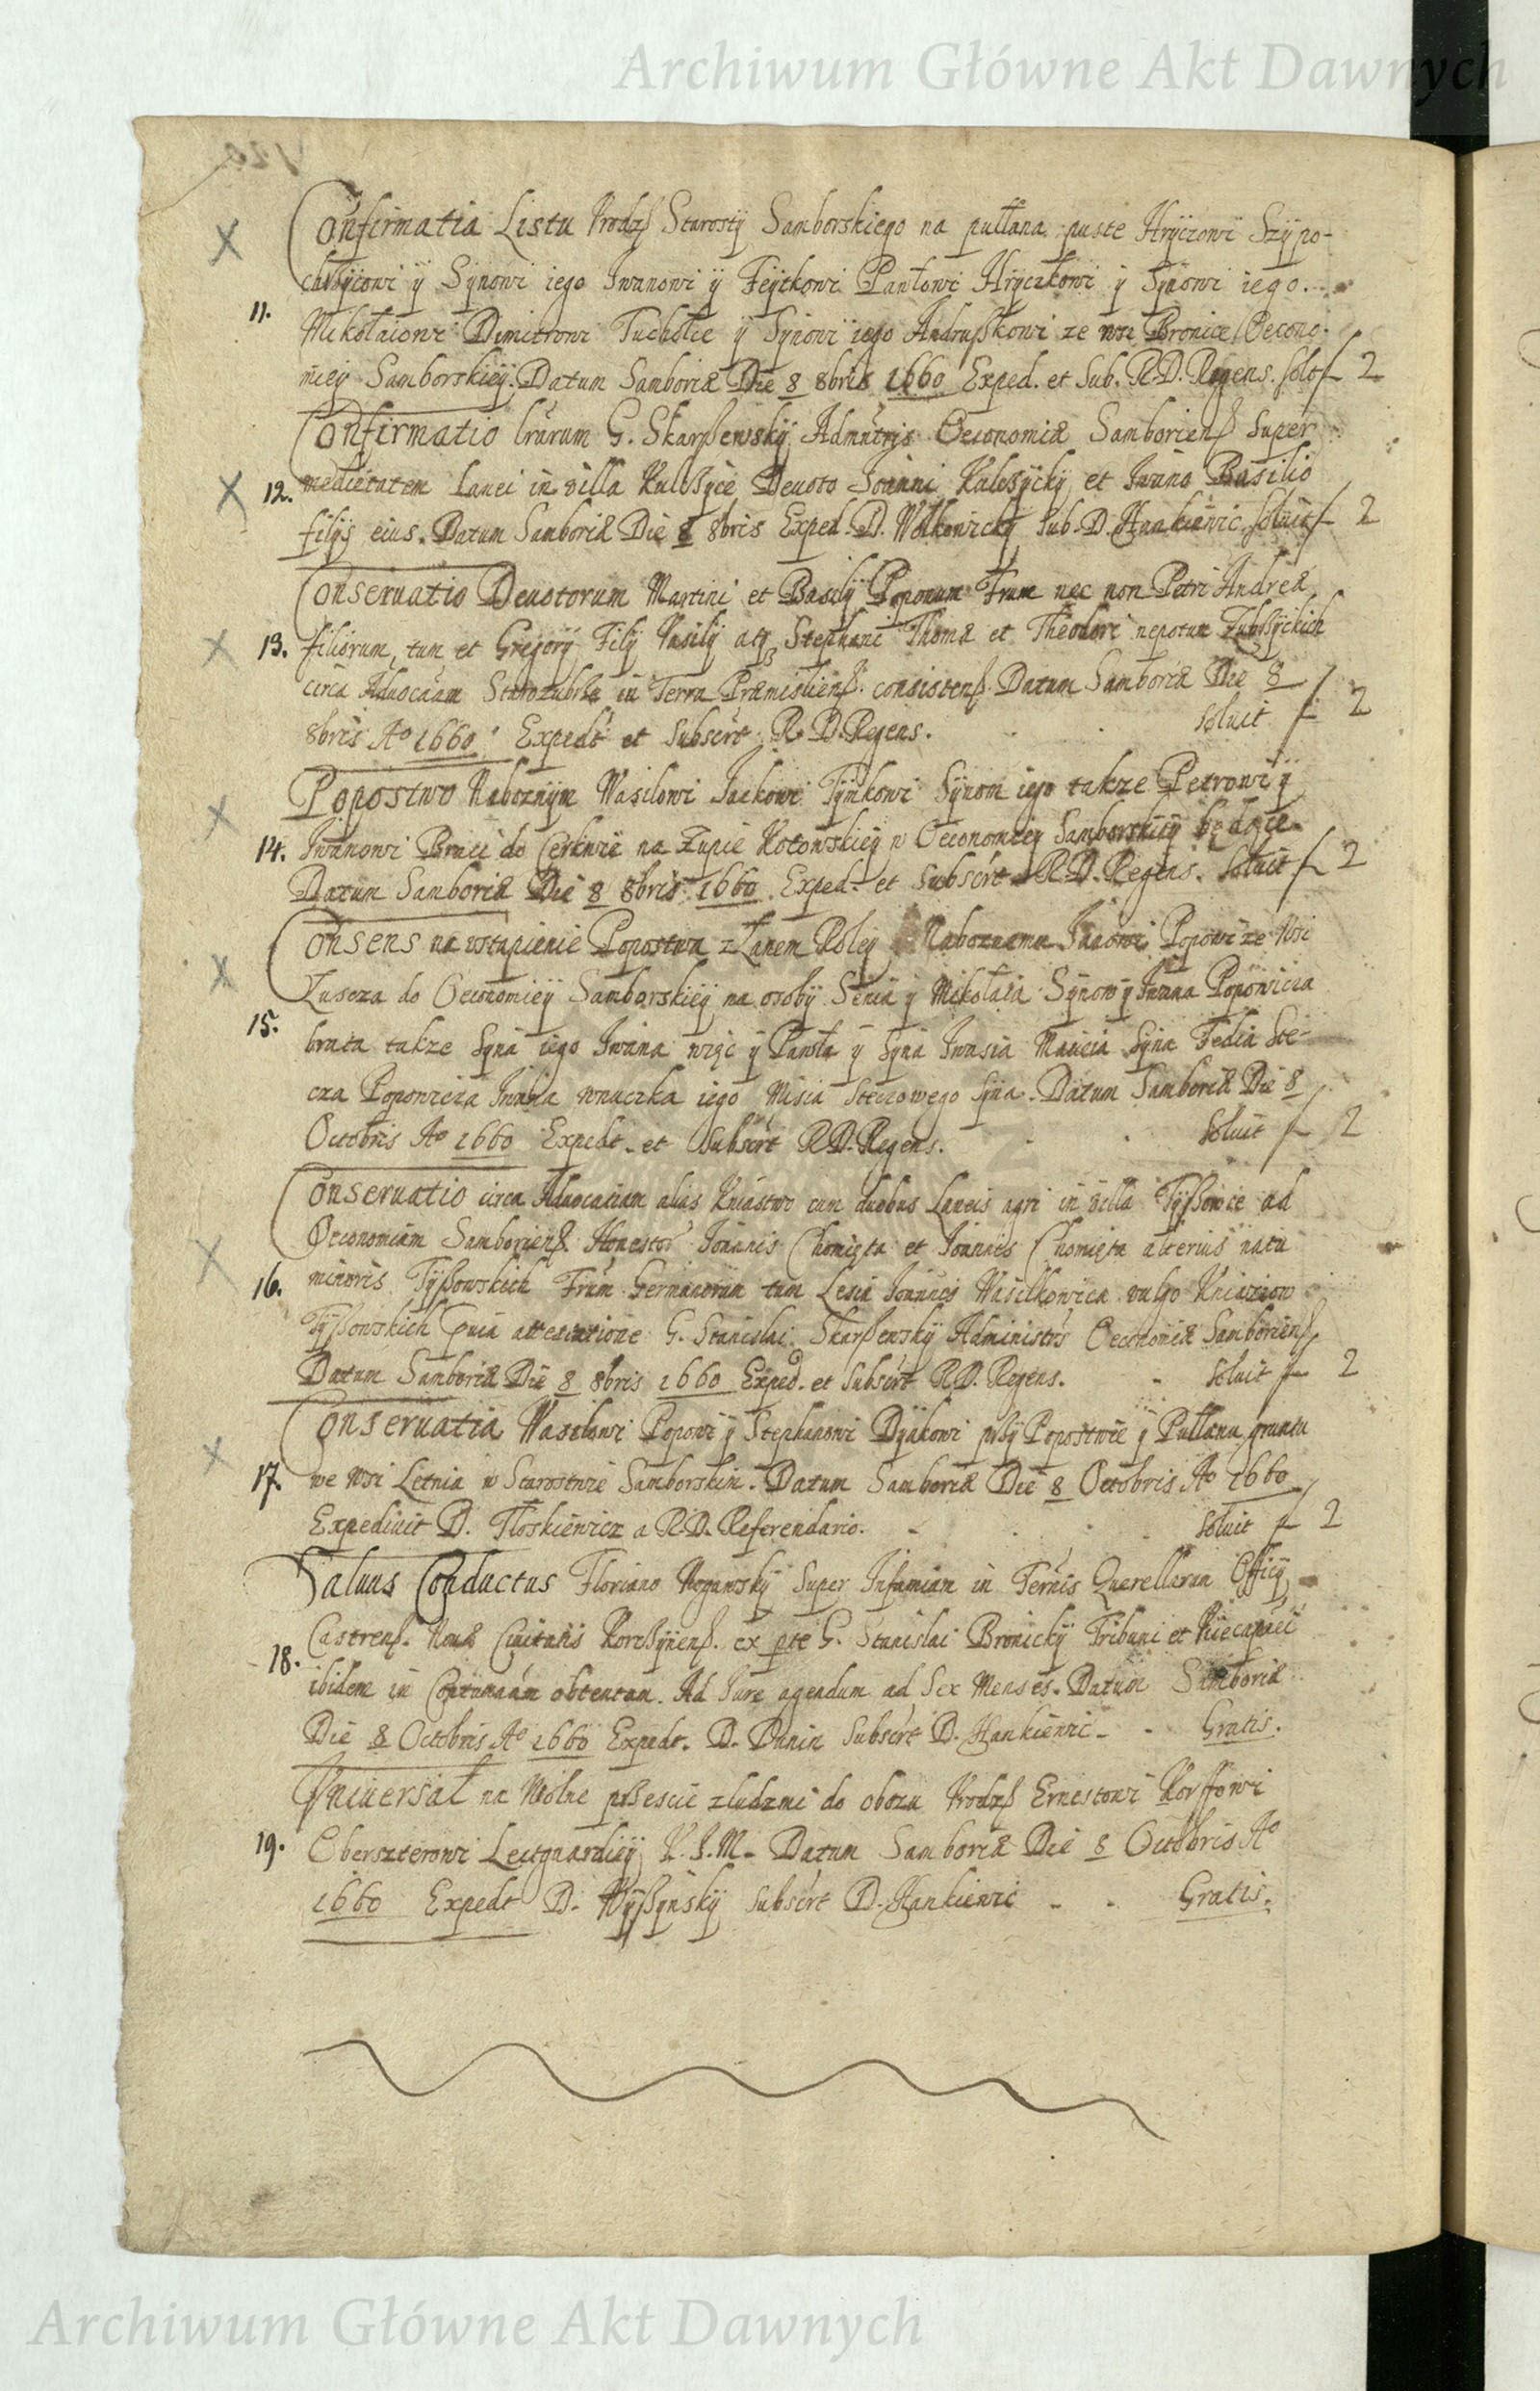 Archiwum Główne Akt Dawnych
Confirmatia Listu Urodzß Starosty Samborskiego na pułłana puste Hryczowi Szÿpo-
ÿ Synowi iego Iwanowi ÿ Feÿtkowi Pawłowi Hryczkowi ÿ Synowi iego
11. Mikołaiowi Dimitrowi Tucholce ÿ Synowi iego Andrußkowi ze wsi Bronice Oecono-
miey Samborskieÿ. Datum Samboriæ Die 8 8bris 1660 Exped. et Sub. R.D. Regens. solt f 2
Confirmatio lrarum G. Skarßewskÿ Admntris Oeconomiæ Samboriens Super
12. medietatem Lanei in villa Kulczÿce Devoto Ioanni Kulczÿckÿ et Iwano Basilio
filÿs eius. Datum Samboriæ Die 8 8bris Exped. D. Wolkowickÿ Sub. D. Hankiewic. soluit f 2
Conseruatio Deuotorum Martini et Basilÿ Poponum Frum nec non Petri Andreæ
13. filiorum, tum et Gregorÿ Filÿ Vasilÿ atq Stephani Thomæ et Theodori nepotum
circa Aduocaam in Terra Præmisliens. consistens. Datum Samboriæ Die 8
8bris Ao 1660. Expedt et Subscrt R.D. Regens. soluit f 2
Popostwo Naboznÿm Wasilowi Iackowi Tÿmkowi Sÿnom iego takze Petrowi ÿ
14. Iwanowi Braci do Cerkwie na Zupie Kotowskieÿ w Oeconomieÿ Samborskieÿ będące
Datum Samboriæ Die 8 8bris 1660. Exped. et Subscrt R.D. Regens. soluit f 2
Consens na wstąpienie Popostwa z Łanem Roleÿ Naboznemu Popowi ze Wsi
do Oeconomieÿ Samborskieÿ na osobÿ Senia ÿ Mikołaia Synow ÿ Iwana Popowicza
15. brata takze syna iego Iwana więc ÿ Pawła ÿ syna Iwasia Macicia Syna Fedia Ste-
cza Popowicza wnuczka iego Misia Steczowego syna. Datum Samboriæ Die 8
Octobris Ao 1660 Expedt. et Subscrt R.D. Regens. soluit f 2
Conseruatio circa Aduocatiam alias Kniastwo cum duobus Laneis agri in villa Tÿßowice ad
Oeconomiam Samboriens. Honestor Ioannis Chomięta et Ioannis Chomięta alterius natu
16. minoris Tÿßowskich Frum Germanorum tum Lesia Ioannis Wasilkowica vulgo Kniaziow
Tÿßowskich attestatione G. Stanislai Skarßewskÿ Administris Oeconomiæ Samboriens.
Datum Samboriæ Die 8 8bris 1660 Exped. et Subscrt R.D. Regens. soluit f 2
Conseruatia Wasilowi Popowi ÿ Stephanowi Dÿakowi prßÿ Popostwie ÿ Pułłanu gruntu
17. we Wsi Letnia w Starostwie Samborskim. Datum Samboriæ Die 8 Octobris Ao 1660
Expediuit D. Tłoskiewicz a R.D. Referendario. soluit f 2
Saluus Conductus Floriano Super Infamiam in Terris Querellarum Officÿ
Castrens. Nouæ Ciuitatis Korcßÿnens. ex pte G. Stanislai Bronickÿ Tribuni et
18. ibidem in obtentam. Ad Iure agendum ad Sex Menses. Datum Samboriæ
Die 8 Octobris Ao 1660 Expedt. D. Dunin Subscrt D. Hankiewic. Gratis.
Vniuersał na Wolne prßescie z ludzmi do obozu Urodzß Ernestowi Korffowi
19. Oberszterowi Leitguardieÿ K.J.M. Datum Samboriæ Die 8 Octobris Ao
1660 Expedt D. Wÿßÿnskÿ Subscrt D. Hankiewic Gratis.
Archiwum Główne Akt Dawnych